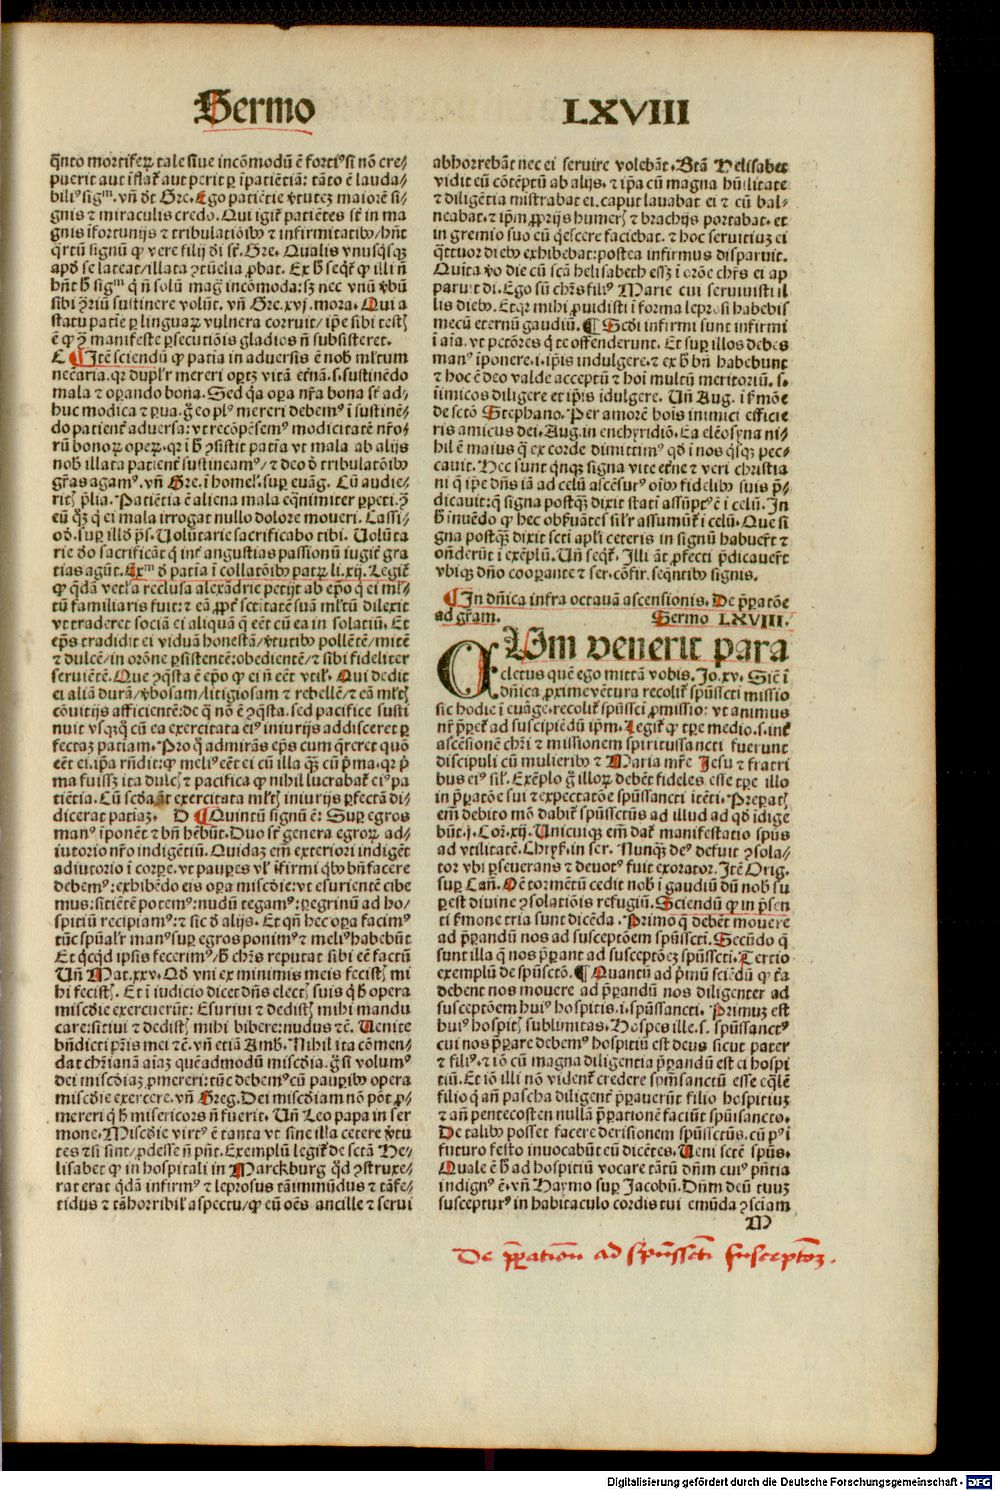 Sermo LXVIII
q̃nto mortiferꝰ tale siue incōmodū ē fortiꝰ si nō cre⸗
puerit aut īflat᷑ aut perit ꝑ īpatiētiā: tāto ē lauda⸗
biliꝰ sigᵐ. vñ d̄t Gre. Ego patiētie ṽtutez maiorē si⸗
gnis ⁊ miraculis credo. Qui igit᷑ patiētes st̄ in ma
gnis īfortunijs ⁊ tribulatiōibꝫ ⁊ infirmitatibꝫ/ hn̄t
q̄rtū signū ꝙ vere filij dī st̄. Gre. Qualis vnusq̄sqꝫ
apd̄ se lateat/ illata ↄtūelia ꝓbat. Ex h̄ seqt᷑ ꝙ illi ñ
hn̄t h̄ sigᵐ q̄ ñ solū mag̃ incōmoda: sꝫ nec vnū v̄bū
sibi ↄ̃riū sustinere volūt. vñ Gre. xxj. mora. Qui a
statu patiē ꝑ linguaꝝ vulnera corruit/ ip̄e sibi testꝭ
ē ꝙ ↄ̃ manifeste ꝑsecutiōis gladios ñ subsisteret.
C ¶ Itē sciendū ꝙ patiā in aduersis ē nob̄ ml̄tum
necc̄aria. qꝛ dupl̄r mereri oportꝫ vitā etn̄ā. s. sustinēdo
mala ⁊ oꝑando bona. Sed q̄a oꝑa nr̄a bona st̄ ad⸗
huc modica ⁊ ꝑua. g̃ eo plꝰ mereri debemꝰ ī sustinē⸗
do patient᷑ aduersa: vt recōpēsemꝰ modicitatē nr̄o⸗
rū bonoꝝ opeꝝ. qꝛ ī h̄ ↄsistit patiā vt mala ab alijs
nob̄ illata patient᷑ sustineamꝰ/ ⁊ deo d̄ tribulatōibꝫ
gr̄as agamꝰ. vñ Gre. ī homel̓. suꝑ euāg. Cū audie⸗
ritꝭ p̄lia. Patiētia ē aliena mala eq̄nimiter ꝑpeti. ↄ̃
eū q̄ꝫ q̄ ei mala irrogat nullo dolore moueri. Cassi⸗
od̄. suꝑ ill̄d p̄s. Volūtarie sacrificabo tibi. Volūta
rie d̄o sacrificāt q̄ int᷑ angustias passionū iugit᷑ gra
tias agūt. Exᵐ d̄ patiā ī collatōibꝫ patꝝ li. xij. Legit᷑
ꝙ q̄dā vetl̄a reclusa alexādrie petijt ab ep̄o q̄ ei ml̄⸗
tū familiaris fuit: ⁊ eā ꝓpt᷑ sctitatē suā ml̄tū dilexit
vt traderet sociā ei aliquā q̄ eēt cū ea in solatiū. Et
ep̄s tradidit ei viduā honestā/ v̄tutibꝫ pollētē/ mitē
⁊ dulcē/ in orōne ꝑsistentē: obedientē/ ⁊ sibi fideliter
seruiētē. Que ↄq̄sta ē ep̄o ꝙ ei ñ eēt vtil̓. Qui dedit
ei aliā durā/ v̄bosam/ litigiosam ⁊ rebellē/ ⁊ eā ml̄tꝭ
cōuitijs afficientē: de q̄ nō ē ↄq̄sta. sed pacifice susti
nuit vsqꝫqꝫ cū ea exercitata eiꝰ iniurijs addisceret ꝑ
fectaꝫ patiam. Pro q̄ admirās ep̄s cum q̄reret quō
eēt ei. ip̄a rn̄dit: ꝙ meliꝰ eēt ei cū illa q̄ꝫ cū p̄ma. qꝛ p̄
ma fuissꝫ ita dulcꝭ ⁊ pacifica ꝙ nihil lucrabat᷑ eiꝰ pa
tiētia. Cū scd̄a āt exercitata ml̄tꝭ iniurijs ꝑfectā di⸗
dicerat patiaꝫ. D ¶ Quintū signū ē: Suꝑ egros
manꝰ īponēt ⁊ bn̄ hēbūt. Duo st̄ genera egroꝝ ad⸗
iutorio nr̄o indigētiū. Quidaꝫ em̄ exteriori indigēt
adiutorio ī corꝑe. vt pauꝑes vl̓ īfirmi qibꝫ bn̄facere
debemꝰ: exhibēdo eis oꝑa miscd̄ie: vt esurientē cibe
mus: sitiētē potemꝰ: nudū tegamꝰ: ꝑegrinū ad ho⸗
spitiū recipiamꝰ: ⁊ sic d̄ alijs. Et qn̄ hec oꝑa facimꝰ
tūc spūal̓r manꝰ suꝑ egros ponimꝰ ⁊ meliꝰ habebūt
Et q̄cqd ipsis fecerimꝰ/ h̄ chr̄s reputat sibi eē factū
Vñ Mat. xxv. Qd̄ vni ex minimis meis fecistꝭ mi
hi fecistꝭ. Et ī iudicio dicet dn̄s electꝭ suis q̄ h̄ opera
miscd̄ie exercuerūt: Esuriui ⁊ dedistꝭ mihi mandu
care: sitiui ⁊ dedistꝭ mihi bibere: nudus ⁊ē. Venite
bn̄dicti pr̄is mei ⁊ē. vñ etiā Amb̄. Nihil ita cōmen⸗
dat chr̄ianā aīaꝫ quēadmodū miscd̄ia. g̃ si volumꝰ
dei miscd̄iaꝫ ꝓmereri: tūc debemꝰ cū pauꝑibꝫ opera
miscd̄ie exercere. vñ Greg. Dei miscd̄iam nō pōt ꝓ⸗
mereri q̄ h̄ misericors ñ fuerit. Vñ Leo papa in ser
mone. Miscd̄ie virtꝰ ē tanta vt sine illa cetere v̄tu
tes ⁊ si sint/ ꝓdesse ñ pn̄t. Exemplū legit᷑ de sctā He⸗
lisabet ꝙ in hospitali in Marckburg qd̄ ↄstruxe⸗
rat erat q̄dā infirmꝰ ⁊ leprosus tā immūdus ⁊ tā fe⸗
tidus ⁊ tā horribil̓ aspectu/ ꝙ eū oēs ancille ⁊ serui
abhorrebāt nec ei seruire volebāt. Btā Helisabet
vidit eū cōtēptū ab alijs. ⁊ ip̄a cū magna hūilitate
⁊ diligētia mīstrabat ei. caput lauabat ei ⁊ eū bal⸗
neabat. ⁊ ip̄m ꝓprijs humerꝭ ⁊ brachijs portabat. et
in gremio suo eū q̄escere faciebat. ⁊ hoc seruitiuꝫ ei
q̄ttuor diebꝫ exhibebat: postea infirmus disparuit.
Quīta v̄o die cū scā helisabeth essꝫ ī orōe chr̄s ei ap
paruit di. Ego sū chr̄s filiꝰ Marie cui seruiuisti il
lis diebꝫ. Et qꝛ mihi ꝓuidisti ī forma leprosi habebis
mecū eternū gaudiū. ¶ Scd̄i infirmi sunt infirmi
ī aīa. vt petc̄ores q̄ te offenderunt. Et suꝑ illos debes
manꝰ īponere. i. ip̄is indulgere. ⁊ ex h̄ bn̄ habebunt
⁊ hoc ē deo valde acceptū ⁊ hoī multū meritoriū. s.
inimicos diligere et ip̄is īdulgere. Vñ Aug. ī ẜmōe
de sctō Stephano. Per amorē hoīs inimici efficie
ris amicus dei. Aug. in enchyridiō. Ea elēosyna ni⸗
hil ē maius q̄ ex corde dimittimꝰ qd̄ ī nos q̄sqꝫ pec⸗
cauit. Hec sunt q̄nqꝫ signa vite etn̄e ⁊ veri christia
ni q̄ ip̄e dn̄s iā ad celū ascēsurꝰ oībꝫ fidelibꝫ suis p̄⸗
dicauit: q̄ signa postq̄ꝫ dixit statī assūptꝰ ē ī celū. In
h̄ inuēdo ꝙ hec obẜuātes sil̓r assumūt᷑ ī celū. Que si
gna postq̄ꝫ dixit scti apl̄i ceteris in signū habuer̄t ⁊
on̄derūt ī exēplū. Vñ seqt᷑. Illi āt ꝓfecti p̄dicauer̄t
vbiqꝫ dn̄o cooꝑante ⁊ ser. cōfir. seq̄ntibꝫ signis.
¶ In dn̄ica infra octauā ascensionis. De p̄ꝑatōe
ad gr̄am. Sermo LXVIII.
CVm venerit para
cletus quē ego mittā vobis. Jo. xv. Sic̄ ī
dn̄ica ꝓxime vētura recolit᷑ spūssctī missio
sic hodie ī euāge. recolit᷑ spūssci ꝓmissio: vt animus
nr̄ p̄ꝑet᷑ ad suscipiēdū ip̄m. Legit᷑ ꝙ tꝑe medio. s. int᷑
ascēsionē chr̄i ⁊ missionem spiritussancti fuerunt
discipuli cū mulieribꝫ ⁊ Maria mr̄e Jesu ⁊ fratri
bus eiꝰ sil̓. Exēplo g̃ illoꝝ debēt fideles esse tꝑe illo
in p̄ꝑatōe sui ⁊ expectatōe spūssancti ītēti. Preꝑatꝭ
em̄ debito mō dabit᷑ spūssctūs ad illud ad qd̄ īdigē
būt. j. Cor. xij. Vnicuiqꝫ em̄ dat᷑ manifestatio spūs
ad vtilitatē. Chrys̄. in ser. Nunq̄ꝫ deꝰ defuit ↄsola⸗
tor vbi ꝑseuerans ⁊ deuotꝰ fuit exorator. Itē Orig.
suꝑ Cañ. Oē tormētū cedit nob̄ ī gaudiū dū nob̄ su
ꝑest diuine ↄsolatiōis refugiū. Sciendū ꝙ in p̄sen
ti ẜmone tria sunt dicēda. Primo q̄ debēt mouere
ad p̄ꝑandū nos ad susceptōem spūsscti. Secūdo q̄
sunt illa q̄ nos p̄ꝑant ad susceptōeꝫ spūsscti. Tertio
exemplū de spūsctō. ¶ Quantū ad p̄mū sciēdū ꝙ t̄a
debent nos mouere ad p̄ꝑandū nos diligenter ad
susceptōem huiꝰ hospitis. i. spūssancti. Primuꝫ est
huiꝰ hospitꝭ sublimitas. Hospes ille. s. spūssanctꝰ
cui nos p̄ꝑare debemꝰ hospitiū est deus sicut pater
⁊ filiꝰ. ⁊ iō cū magna diligentia p̄ꝑandū est ei hospi
tiū. Et iō illi nō vident᷑ credere spm̄sanctū esse eq̄lē
filio q̄ añ pascha diligent᷑ p̄ꝑauerūt filio hospitiuꝫ
⁊ añ pentecosten nullā p̄ꝑationē faciūt spūisancto.
De talibꝫ posset facere derisionem spūssctūs. cū pꝰ ī
futuro festo inuocabūt eū dicētes. Veni sctē spūs.
Quale ē h̄ ad hospitiū vocare tātū dn̄m cuiꝰ pn̄tia
indignꝰ ē. vñ Haymo suꝑ Jacobū. Dn̄m deū tuuꝫ
suscepturꝰ in habitaculo cordis tui emūda ↄsciam
M
De p̄ꝑationē ad spūssctī susceptōeꝫ.
Digitalisierung gefördert durch die Deutsche Forschungsgemeinschaft - DFG